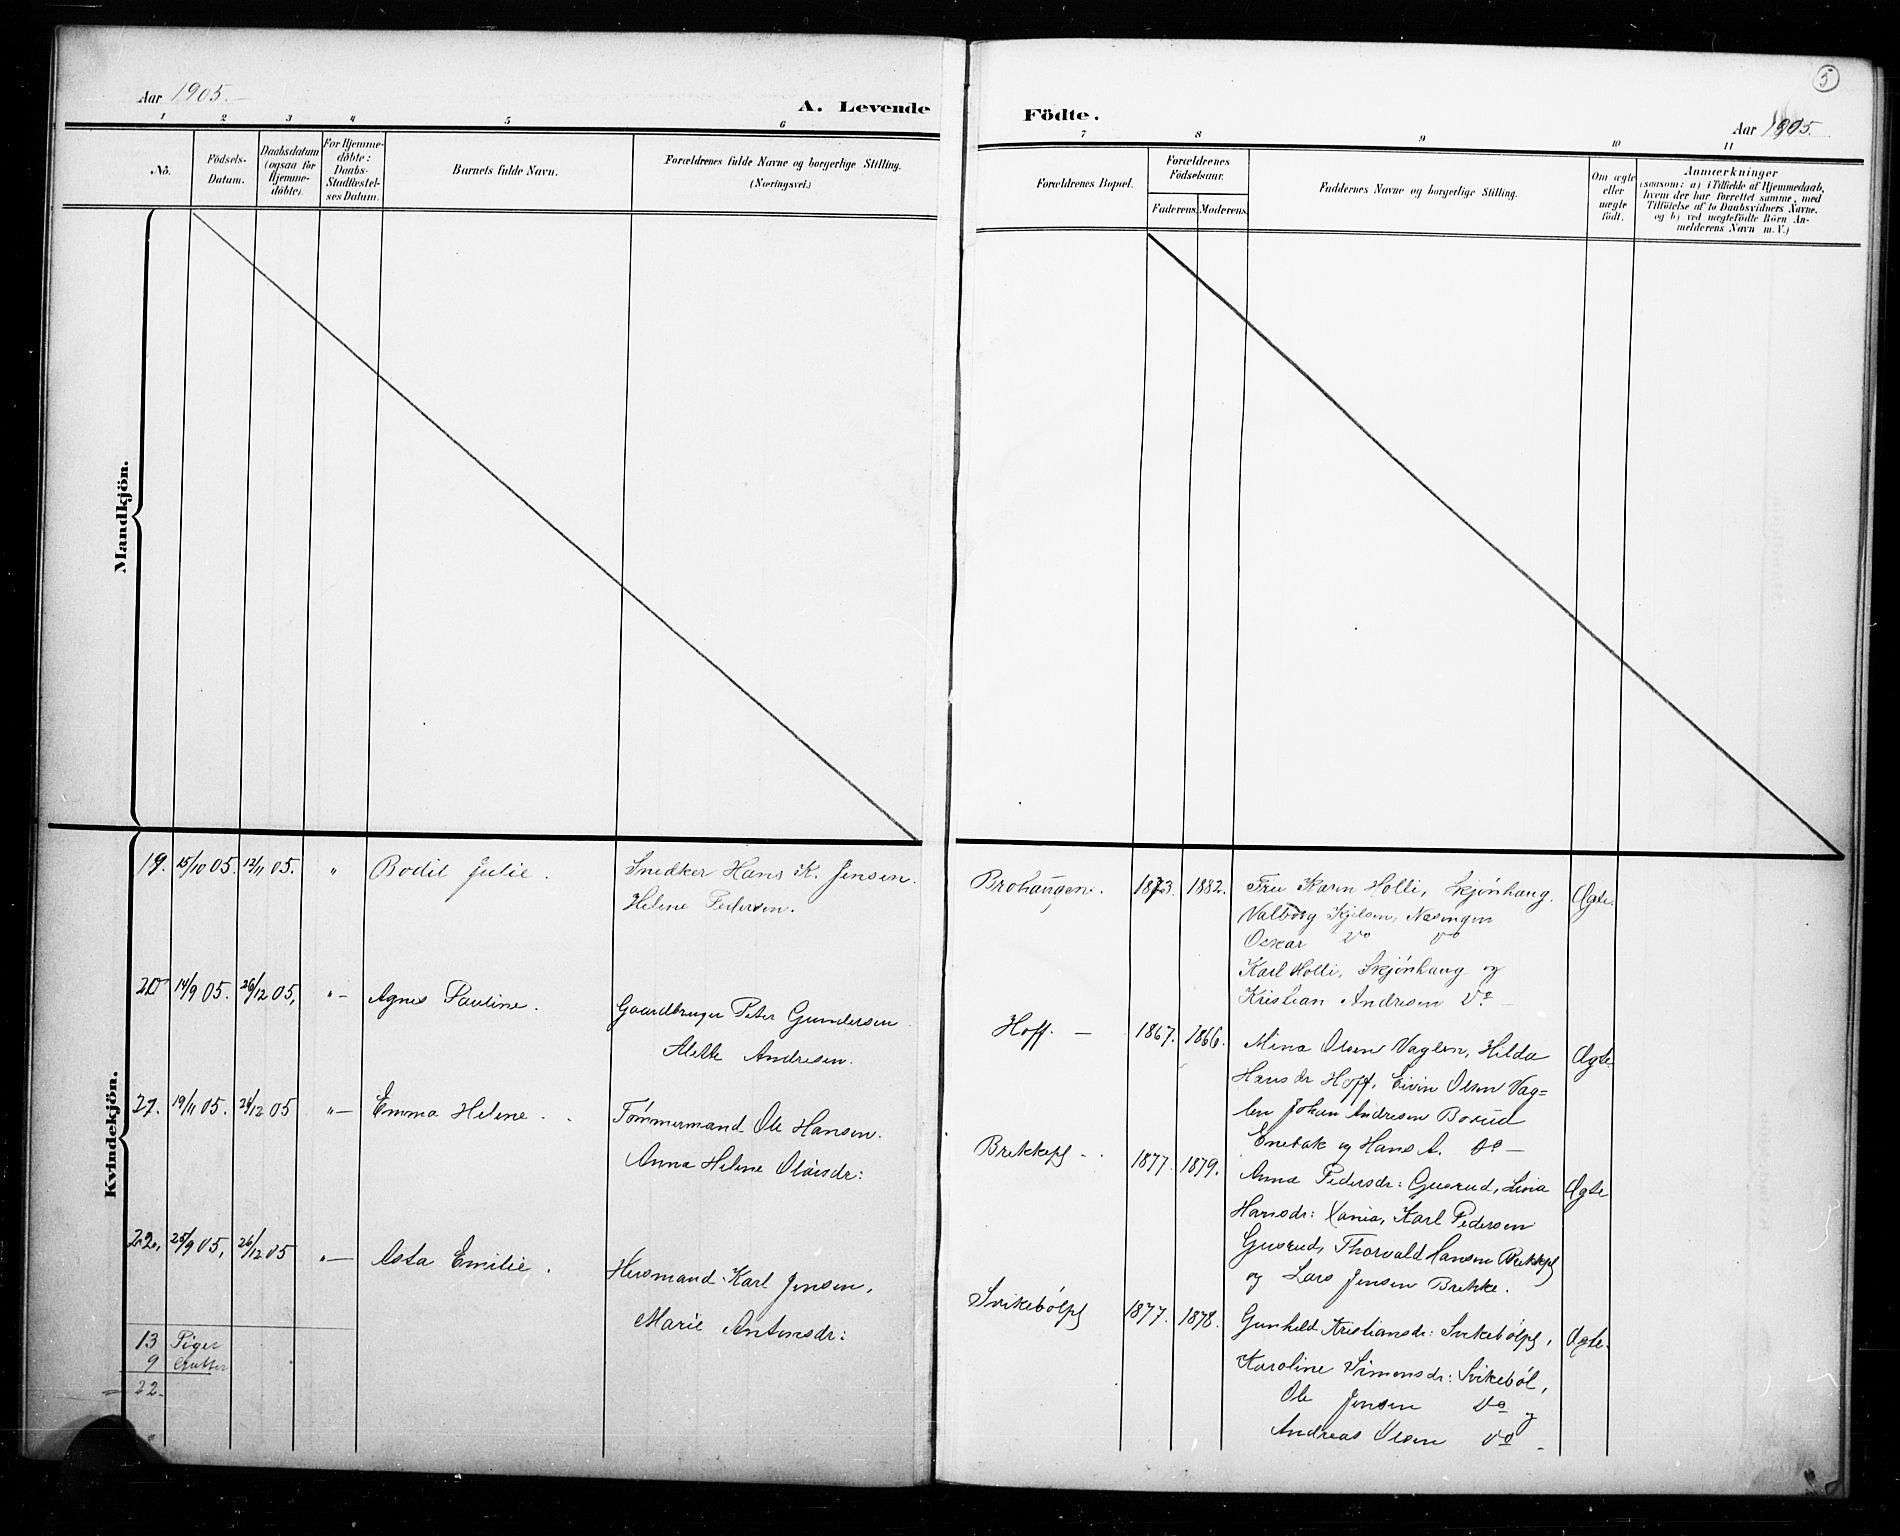 Aar 1905.
A. Levende
1 2 3 4 5 6
Nö.
Födsels-Datum.
Daabsdatum (ogsaa for Hjemme-döbte).
For Hjemme-döbte: Daabs-Stadfæstel-ses Datum.
Barnets fulde Navn.
Forældrenes fulde Navne og borgerlige Stilling.
(Næringsvei.)
Mandkjön.
Kvindekjön.
19. 15/10 05. 12/11 05. " Bodil Julie. Snedker Hans K. Jensen.
Helene Pedersen.
20 14/9 05. 26/12 05. "– Agnes Pauline. Gaardbruger Peter Gundersen
Alette Andresen.
21. 19/11 05. 26/12 05 "– Emma Helene. Tømmermand Ole Hansen.
Anna Helene Olausdr:
22. 25/9 05, 26/12 05 "– Asta Emilie. Husmand Karl Jensen,
Marie Antonsdr:
13 Piger
9 Gutter
22.
5
Födte.
Aar 1905.
7 8 9 10 11
Forældrenes Bopæl.
Forældrenes Födselsaar.
Faderens. Moderens.
Faddernes Navne og borgerlige Stilling.
Om ægte eller uægte födt.
Anmærkninger
(saasom: a) i Tilfælde af Hjemmedaab,
hvem der har forrettet samme, med
Tilföielse af to Daabsvidners Navne.
og b) ved uægtefödte Börn An-
melderens Navn m. V.)
Brohaugen. 1873. 1882. Fru Karn Holli, Skjønhaug. Ægte.
Valborg Kjelsen, Næsengen
Oscar Do Do
Karl Holli, Skjønhaug og
Kristian Andresen Do
Hoff. – 1867. 1866. Mina Olsen Vaglen, Hilda Ægte
Hansdr Hoff, Eivin Olsen Vag=
len Johan Andresen Borud
Enebak og Hans A. Do –
Brekkepl – 1877. 1879. Anna Pedersdr: Gusrud, Lina Ægte
Hansdr: Xania, Karl Pedersen
Gusrud, Thorvald Hansen Brekkpl
og Lars Jensen Brekke.
Svikebølpl 1877. 1878. Gunhild Kristiansdr: Svikebølpl, Ægte.
Karoline Simensdr: Svikebøl,
Ole Jensen Do og
Andreas Olsen Do